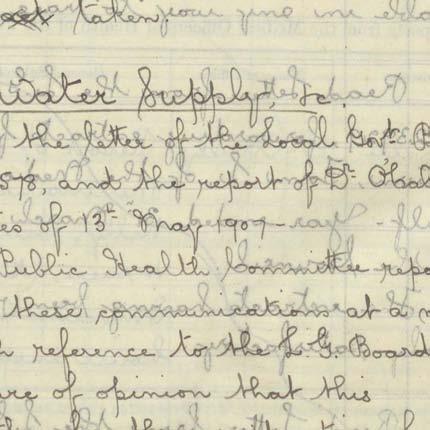 taken.
Water Supply, &c.
the letter of the Local Gov.t B
578, and the report of Dr.
es of 13th May 1907 -
Public Health Committee repo
these communications at a
reference to the L. G. Board
are of opinion that this